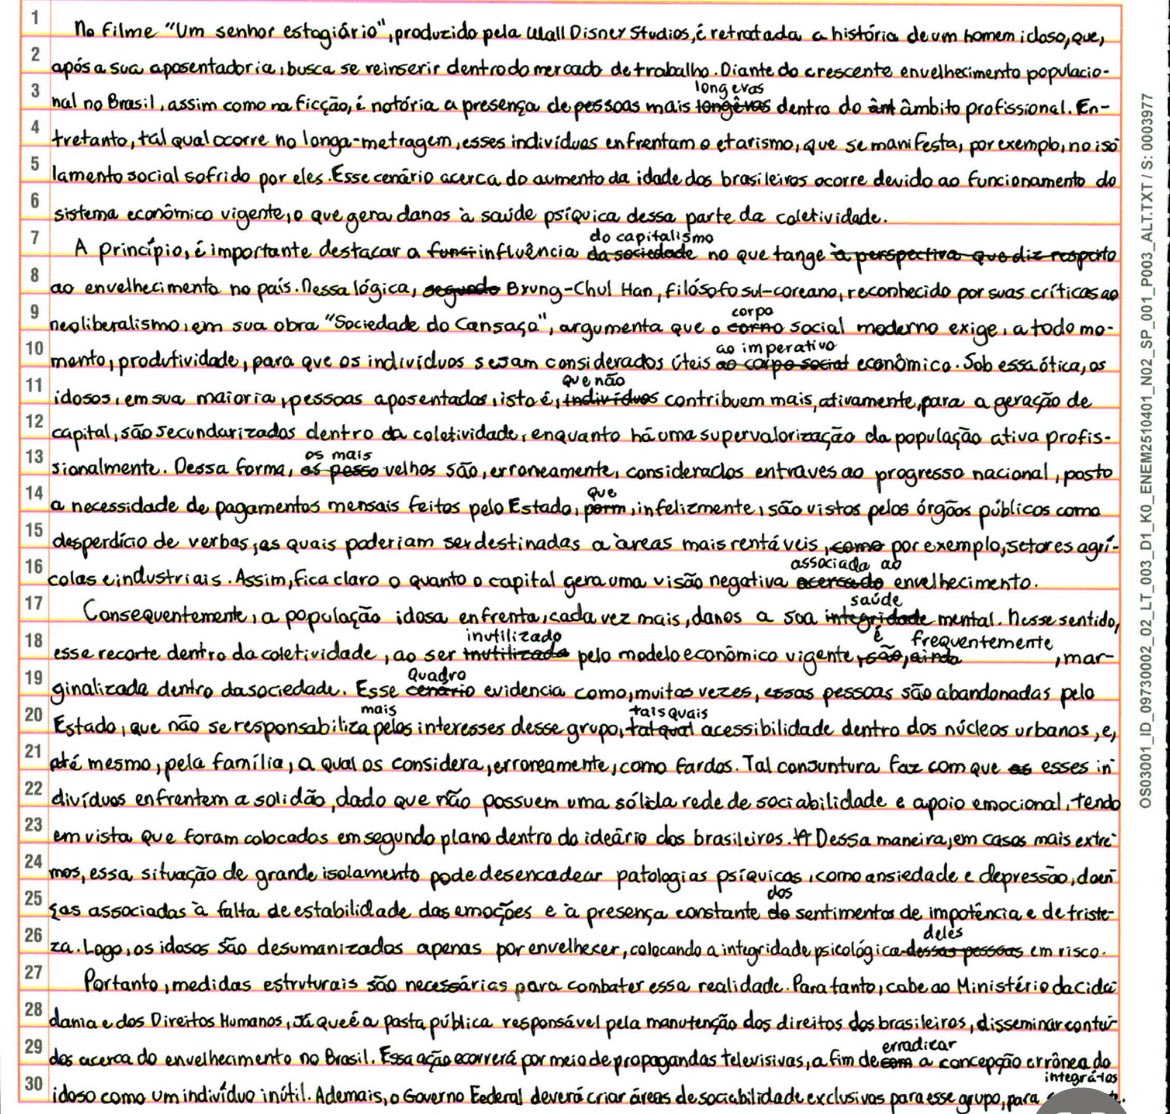 1 No filme "Um senhor estagiário", produzido pela Wall Disney Studios, é retratada a história de um homem idoso, que,
2 após a sua aposentadoria, busca se reinserir dentro do mercado de trabalho. Diante do crescente envelhecimento populacio-
longevas
3 nal no Brasil, assim como na ficção, é notória a presença de pessoas mais longêvas dentro do âm âmbito profissional. En-
4 tretanto, tal qual ocorre no longa-metragem, esses indivíduos enfrentam o etarismo, que se manifesta, por exemplo, no iso
5 lamento social sofrido por eles. Esse cenário acerca do aumento da idade dos brasileiros ocorre devido ao funcionamento do
6 sistema econômico vigente, o que gera danos à saúde psíquica dessa parte da coletividade.
do capitalismo
7 A princípio, é importante destacar a func influência da sociedade no que tange à perspectiva que diz respeito
8 ao envelhecimento no país. Nessa lógica, segundo Byung-Chul Han, filósofo sul-coreano, reconhecido por suas críticas ao
corpo
9 neoliberalismo, em sua obra "Sociedade do Cansaço", argumenta que o corno social moderno exige, a todo mo-
ao imperativo
10 mento, produtividade, para que os indivíduos sejam considerados úteis ao corpo social econômico. Sob essa ótica, os
que não
11 idosos, em sua maioria, pessoas aposentadas, isto é, indivíduos contribuem mais, ativamente, para a geração de
12 capital, são secundarizados dentro da coletividade, enquanto há uma supervalorização da população ativa profis-
os mais
13 sionalmente. Dessa forma, as pesso velhos são, erroneamente, considerados entraves ao progresso nacional, posto
que
14 a necessidade de pagamentos mensais feitos pelo Estado, porm, infelizmente, são vistos pelos órgãos públicos como
15 desperdício de verbas, as quais poderiam ser destinadas a áreas mais rentáveis, como por exemplo, setores agrí-
associada ao
16 colas e industriais. Assim, fica claro o quanto o capital gera uma visão negativa acerca do envelhecimento.
saúde
17 Consequentemente, a população idosa enfrenta, cada vez mais, danos a sua integridade mental. Nesse sentido,
inutilizado é frequentemente
18 esse recorte dentro da coletividade, ao ser inutilizada pelo modelo econômico vigente, são, ainda , mar-
Quadro
19 ginalizada dentro da sociedade. Esse cenário evidencia como, muitas vezes, essas pessoas são abandonadas pelo
mais tais quais
20 Estado, que não se responsabiliza pelos interesses desse grupo, tal qual acessibilidade dentro dos núcleos urbanos, e,
21 até mesmo, pela família, a qual os considera, erroneamente, como fardos. Tal conjuntura faz com que os esses in
22 divíduos enfrentem a solidão, dado que não possuem uma sólida rede de sociabilidade e apoio emocional, tendo
23 em vista que foram colocados em segundo plano dentro do ideário dos brasileiros. A Dessa maneira, em casos mais extre
24 mos, essa situação de grande isolamento pode desencadear patologias psíquicas, como ansiedade e depressão, doen
dos
25 ças associadas à falta de estabilidade das emoções e à presença constante de sentimentos de impotência e de triste-
deles
26 za. Logo, os idosos são desumanizados apenas por envelhecer, colocando a integridade psicológica dessas pessoas em risco.
27 Portanto, medidas estruturais são necessárias para combater essa realidade. Para tanto, cabe ao Ministério da Cida
28 dania e dos Direitos Humanos, já que é a pasta pública responsável pela manutenção dos direitos dos brasileiros, disseminar conteú-
erradicar
29 dos acerca do envelhecimento no Brasil. Essa ação ocorrerá por meio de propagandas televisivas, a fim de com a concepção errônea do
integrá-los
30 idoso como um indivíduo inútil. Ademais, o Governo Federal deverá criar áreas de sociabilidade exclusivas para esse grupo, para
OS03001_ID_09730002_02_LT_003_D1_K0_ENEM2510401_N02_SP_001_P003_ALT.TXT / S: 0003977